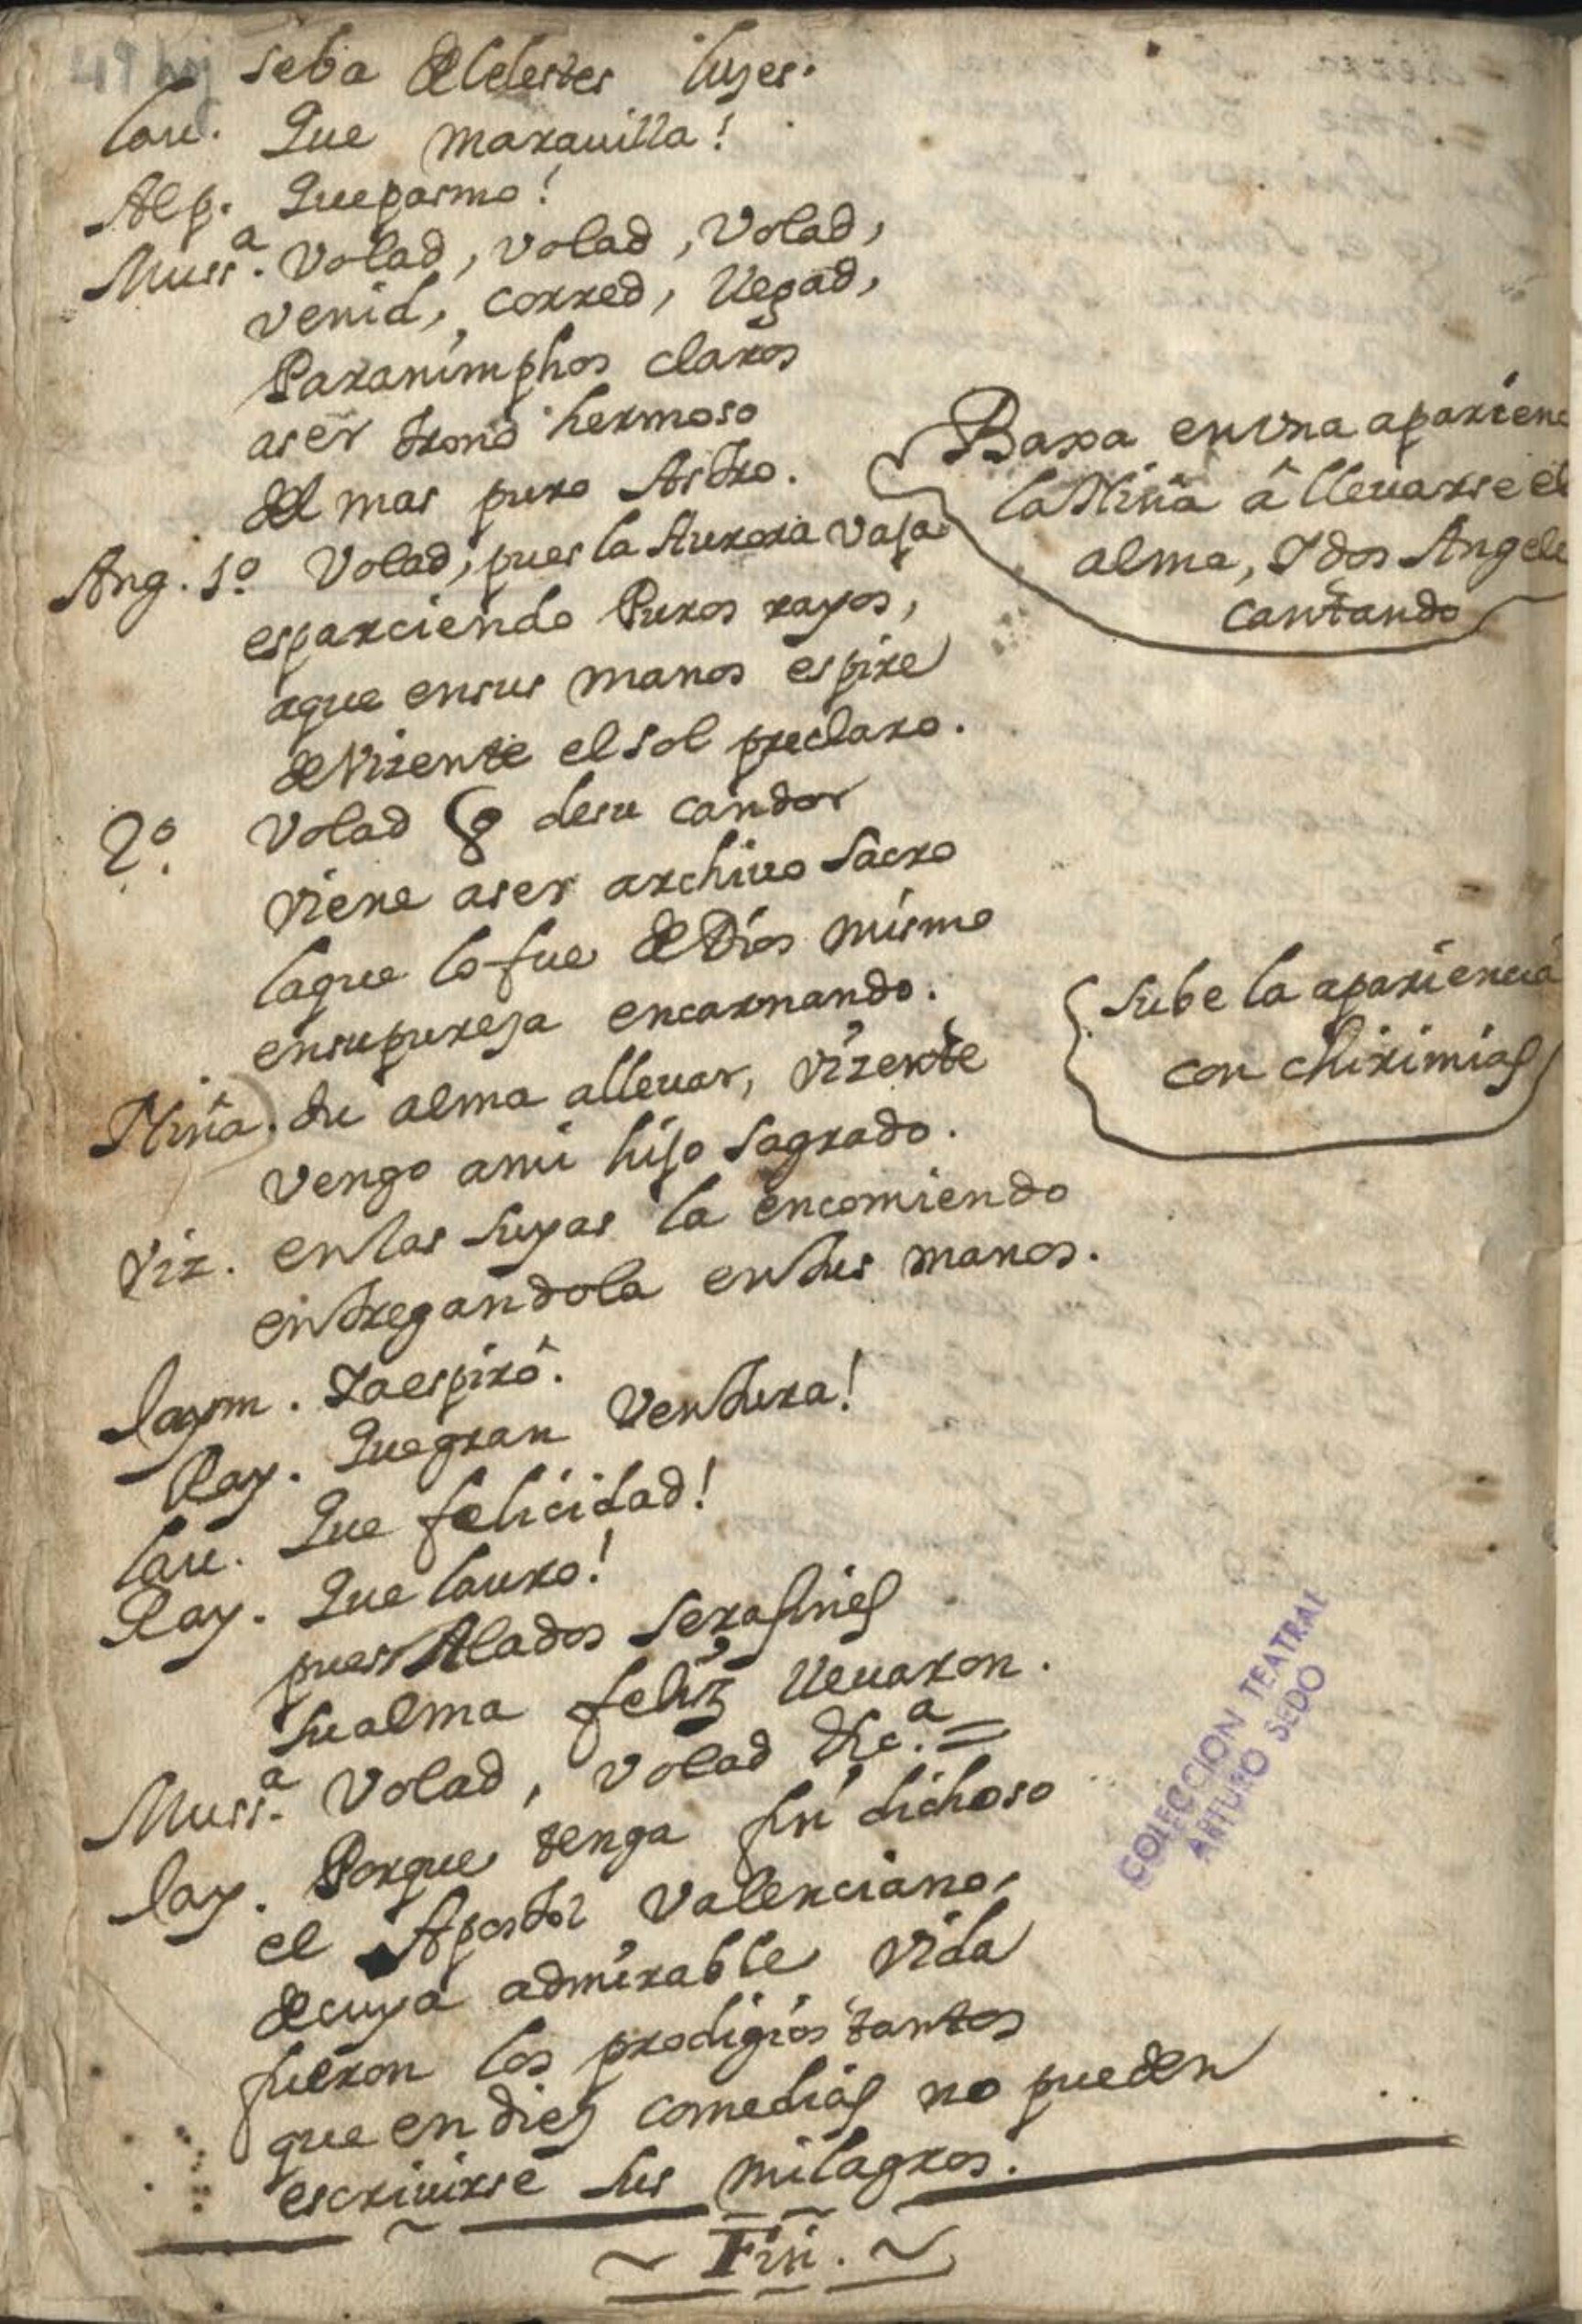 seba de Celestes luzes.
Lau. Que marauilla!
Alf. Que pasmo!
Muss.ª Volad, volad, Volad,
venid, corred, llegad,
Paranimphos claros
aser trono hermoso
del mas puro Astro.
Baxa en vna aparienc
la Niña â lleuarse el
alma, Y dos Angele
cantando
Ang. 1º Volad, pues la Aurora vaja
esparciendo Puros rayos,
aque ensus manos espire
de Vizente el sol preclaro.
2º. Volad q desu candor
viene aser archiuo sacro
laque lo fue de Dios mismo
ensupureza encarnando.
Niña. tu alma alleuar, Vizente
vengo ami hijo sagrado.
Sube la apariencia
con chirimias
Viz. en las suyas la encomiendo
entregandola en tus manos.
Jaym. Ya espirô.
Ray. Que gran Ventura!
Lau. Que felicidad!
Ray. Que lauro!
pues Alados serafines
su alma feliz lleuaron.
Muss.ª Volad, volad &c.ª =
Jay. Porque tenga fin dichoso
el Apostol Valenciano,
de cuya admirable vida
fueron los prodigios tantos
que en diez comedias no pueden
escriuirse sus milagros.
~ Fin. ~
COLECCION TEATRAL
ARTURO SEDO